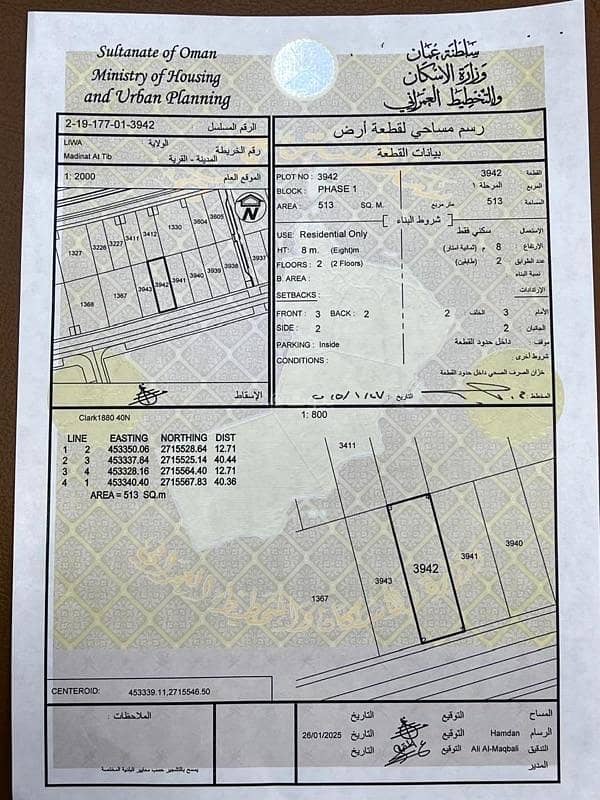 Sultanate of Oman
Ministry of Housing
and Urban Planning
سلطنة عمان
وزارة الإسكان
والتخطيط العمراني
2-19-177-01-3942 الرقم المسلسل
LIWA الولاية :
Madinat At Tib المدينة - القرية رقم الخريطة
1: 2000 الموقع العام
N
3605
3604
1330
3412
3411
3227
3226
1327
3937
3938
3939
3940
3941
3942
3943
1367
1368
الإسقاط
رسم مساحي لقطعة أرض
بيانات القطعة
PLOT NO : 3942 3942 القطعة
BLOCK : PHASE 1 المرحلة ١ المربع
AREA : 513 SQ. M. متر مربع 513 المساحة
شروط البناء
USE: Residential Only سكني فقط الإستعمال
HT: 8 m. (Eight)m 8 م (ثمانية امتار) الإرتفاع
FLOORS : 2 (2 Floors) 2 (طابقين) عدد الطوابق
B. AREA : نسبة البناء
SETBACKS : الإرتدادات
FRONT : 3 BACK : 2 2 الخلف 3 الأمام
SIDE : 2 2 الجانبان
PARKING : Inside داخل حدود القطعة موقف:
CONDITIONS : شروط اخرى
خزان الصرف الصحي داخل حدود القطعة
التاريخ : المخطط :
Clark1880 40N
1: 800
LINE EASTING NORTHING DIST
1 2 453350.06 2715528.64 12.71
2 3 453337.84 2715525.14 40.44
3 4 453328.16 2715564.40 12.71
4 1 453340.40 2715567.83 40.36
AREA = 513 SQ.m
3411
3940
3941
3942
3943
1367
CENTEROID: 453339.11,2715546.50
الملاحظات :
يسمح بالتشجير حسب معايير البلدية المختصة
التاريخ التوقيع المساح
26/01/2025 التاريخ التوقيع Hamdan الرسام
التاريخ التوقيع Ali Al-Maqbali التدقيق
المدير